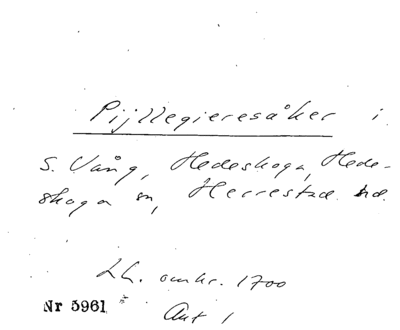 Pijllegieresåker i
S. Vång, Hedeskoga, Hede-
skoga sn, Herrestad hd.
Lh. omkr. 1700
Nr 5961 Akt 1